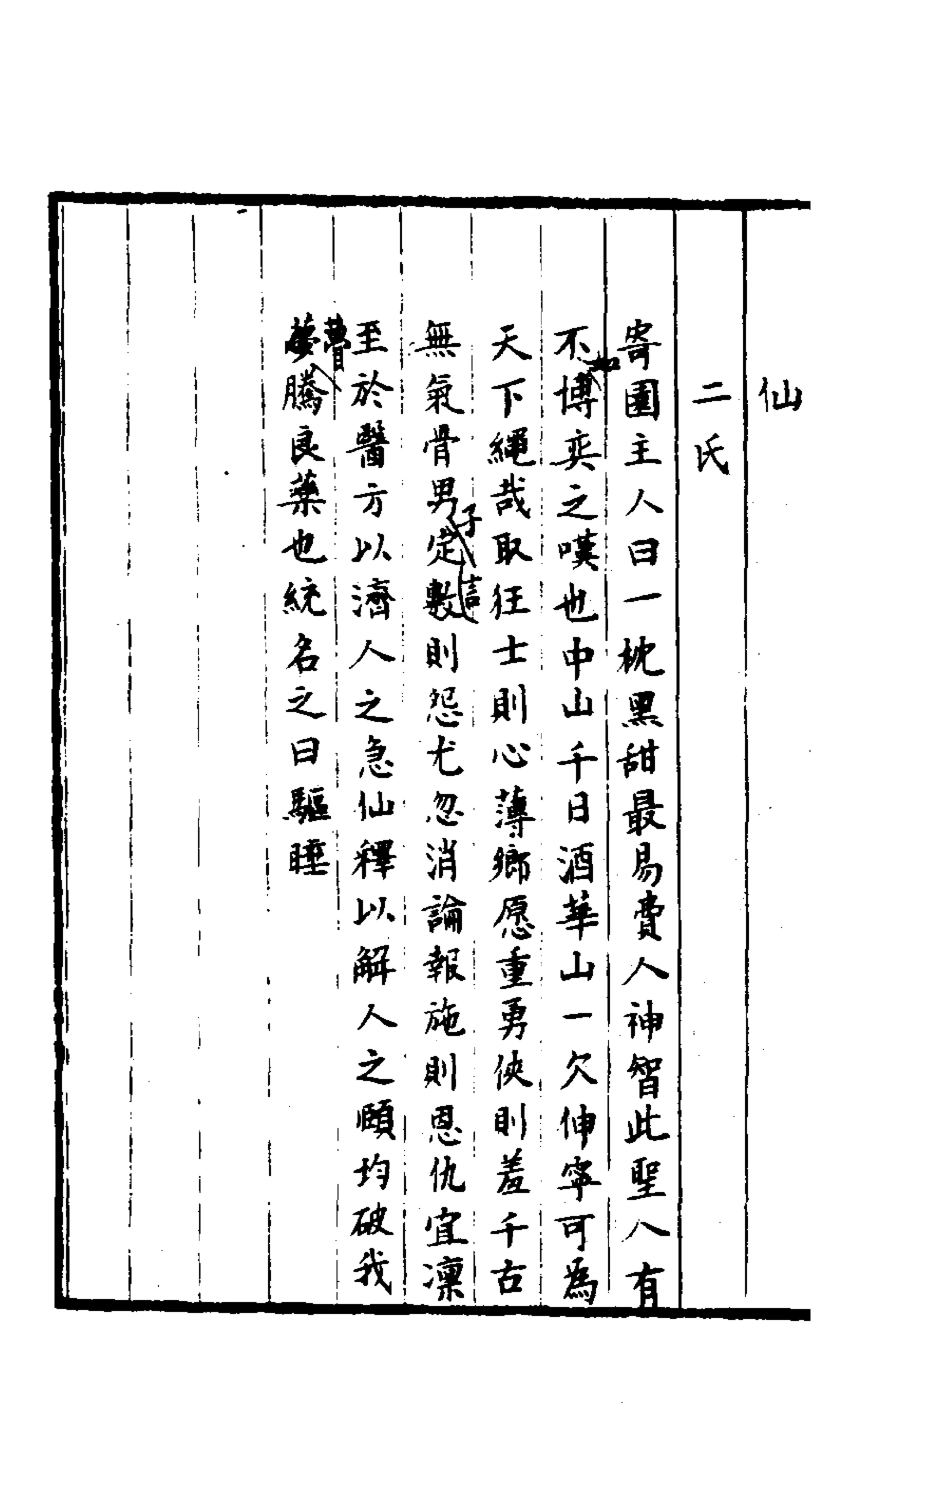 仙
二氏
寄園主人曰一枕黑甜最易費人神智此聖人有
不如博奕之嘆也中山千日酒華山一欠伸寧可為
天下繩哉取狂士則心薄鄉愿重勇俠則羞千古
無氣骨男子信定數則怨尤忽消論報施則恩仇宜凜
至於醫方以濟人之急仙釋以解人之頤均破我
瞢騰良藥也統名之曰驅睡